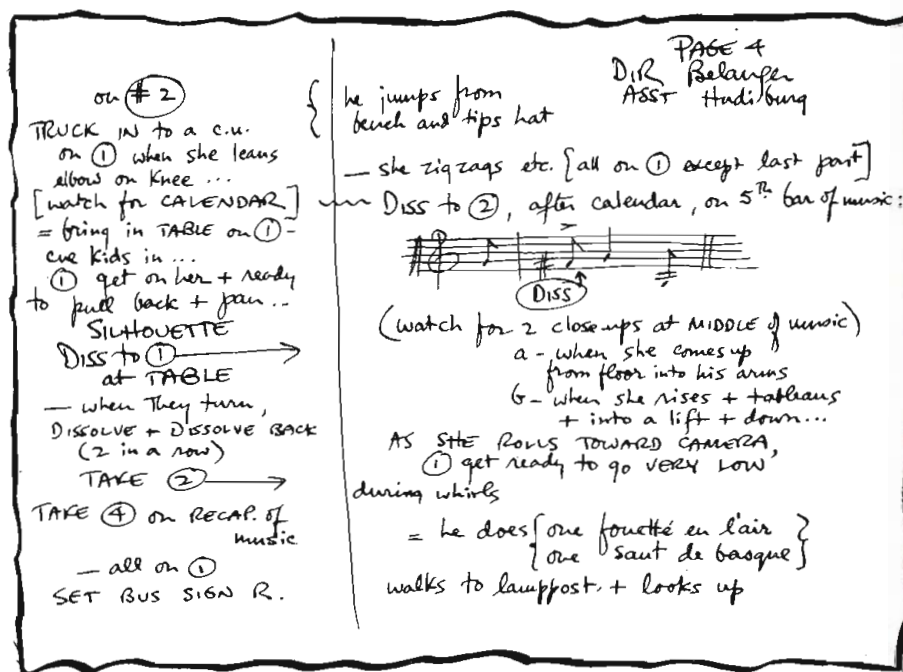 PAGE 4
DIR Belanger
ASST Hudiburg
on #2
TRUCK IN to a c.u.
on 1 when she leans
elbow on knee ...
[watch for CALENDAR]
= bring in TABLE on 1 -
cue kids in ...
1 get on her + ready
to pull back + pan ...
SILHOUETTE
DISS to 1
at TABLE
— when they turn,
DISSOLVE + DISSOLVE BACK
(2 in a row)
TAKE 2
TAKE 4 on RECAP. of
music
— all on 1
SET BUS SIGN R.
{ he jumps from
bench and tips hat
— she zigzags etc. [all on 1 except last part]
DISS to 2, after calendar, on 5TH bar of music:
DISS
(watch for 2 close-ups at MIDDLE of music)
a - when she comes up
from floor into his arms
b - when she rises + tableaus
+ into a lift + down ...
AS SHE ROLLS TOWARD CAMERA,
1 get ready to go VERY LOW
during whirls
= he does { one fouetté en l'air
one saut de basque }
walks to lamppost. + looks up